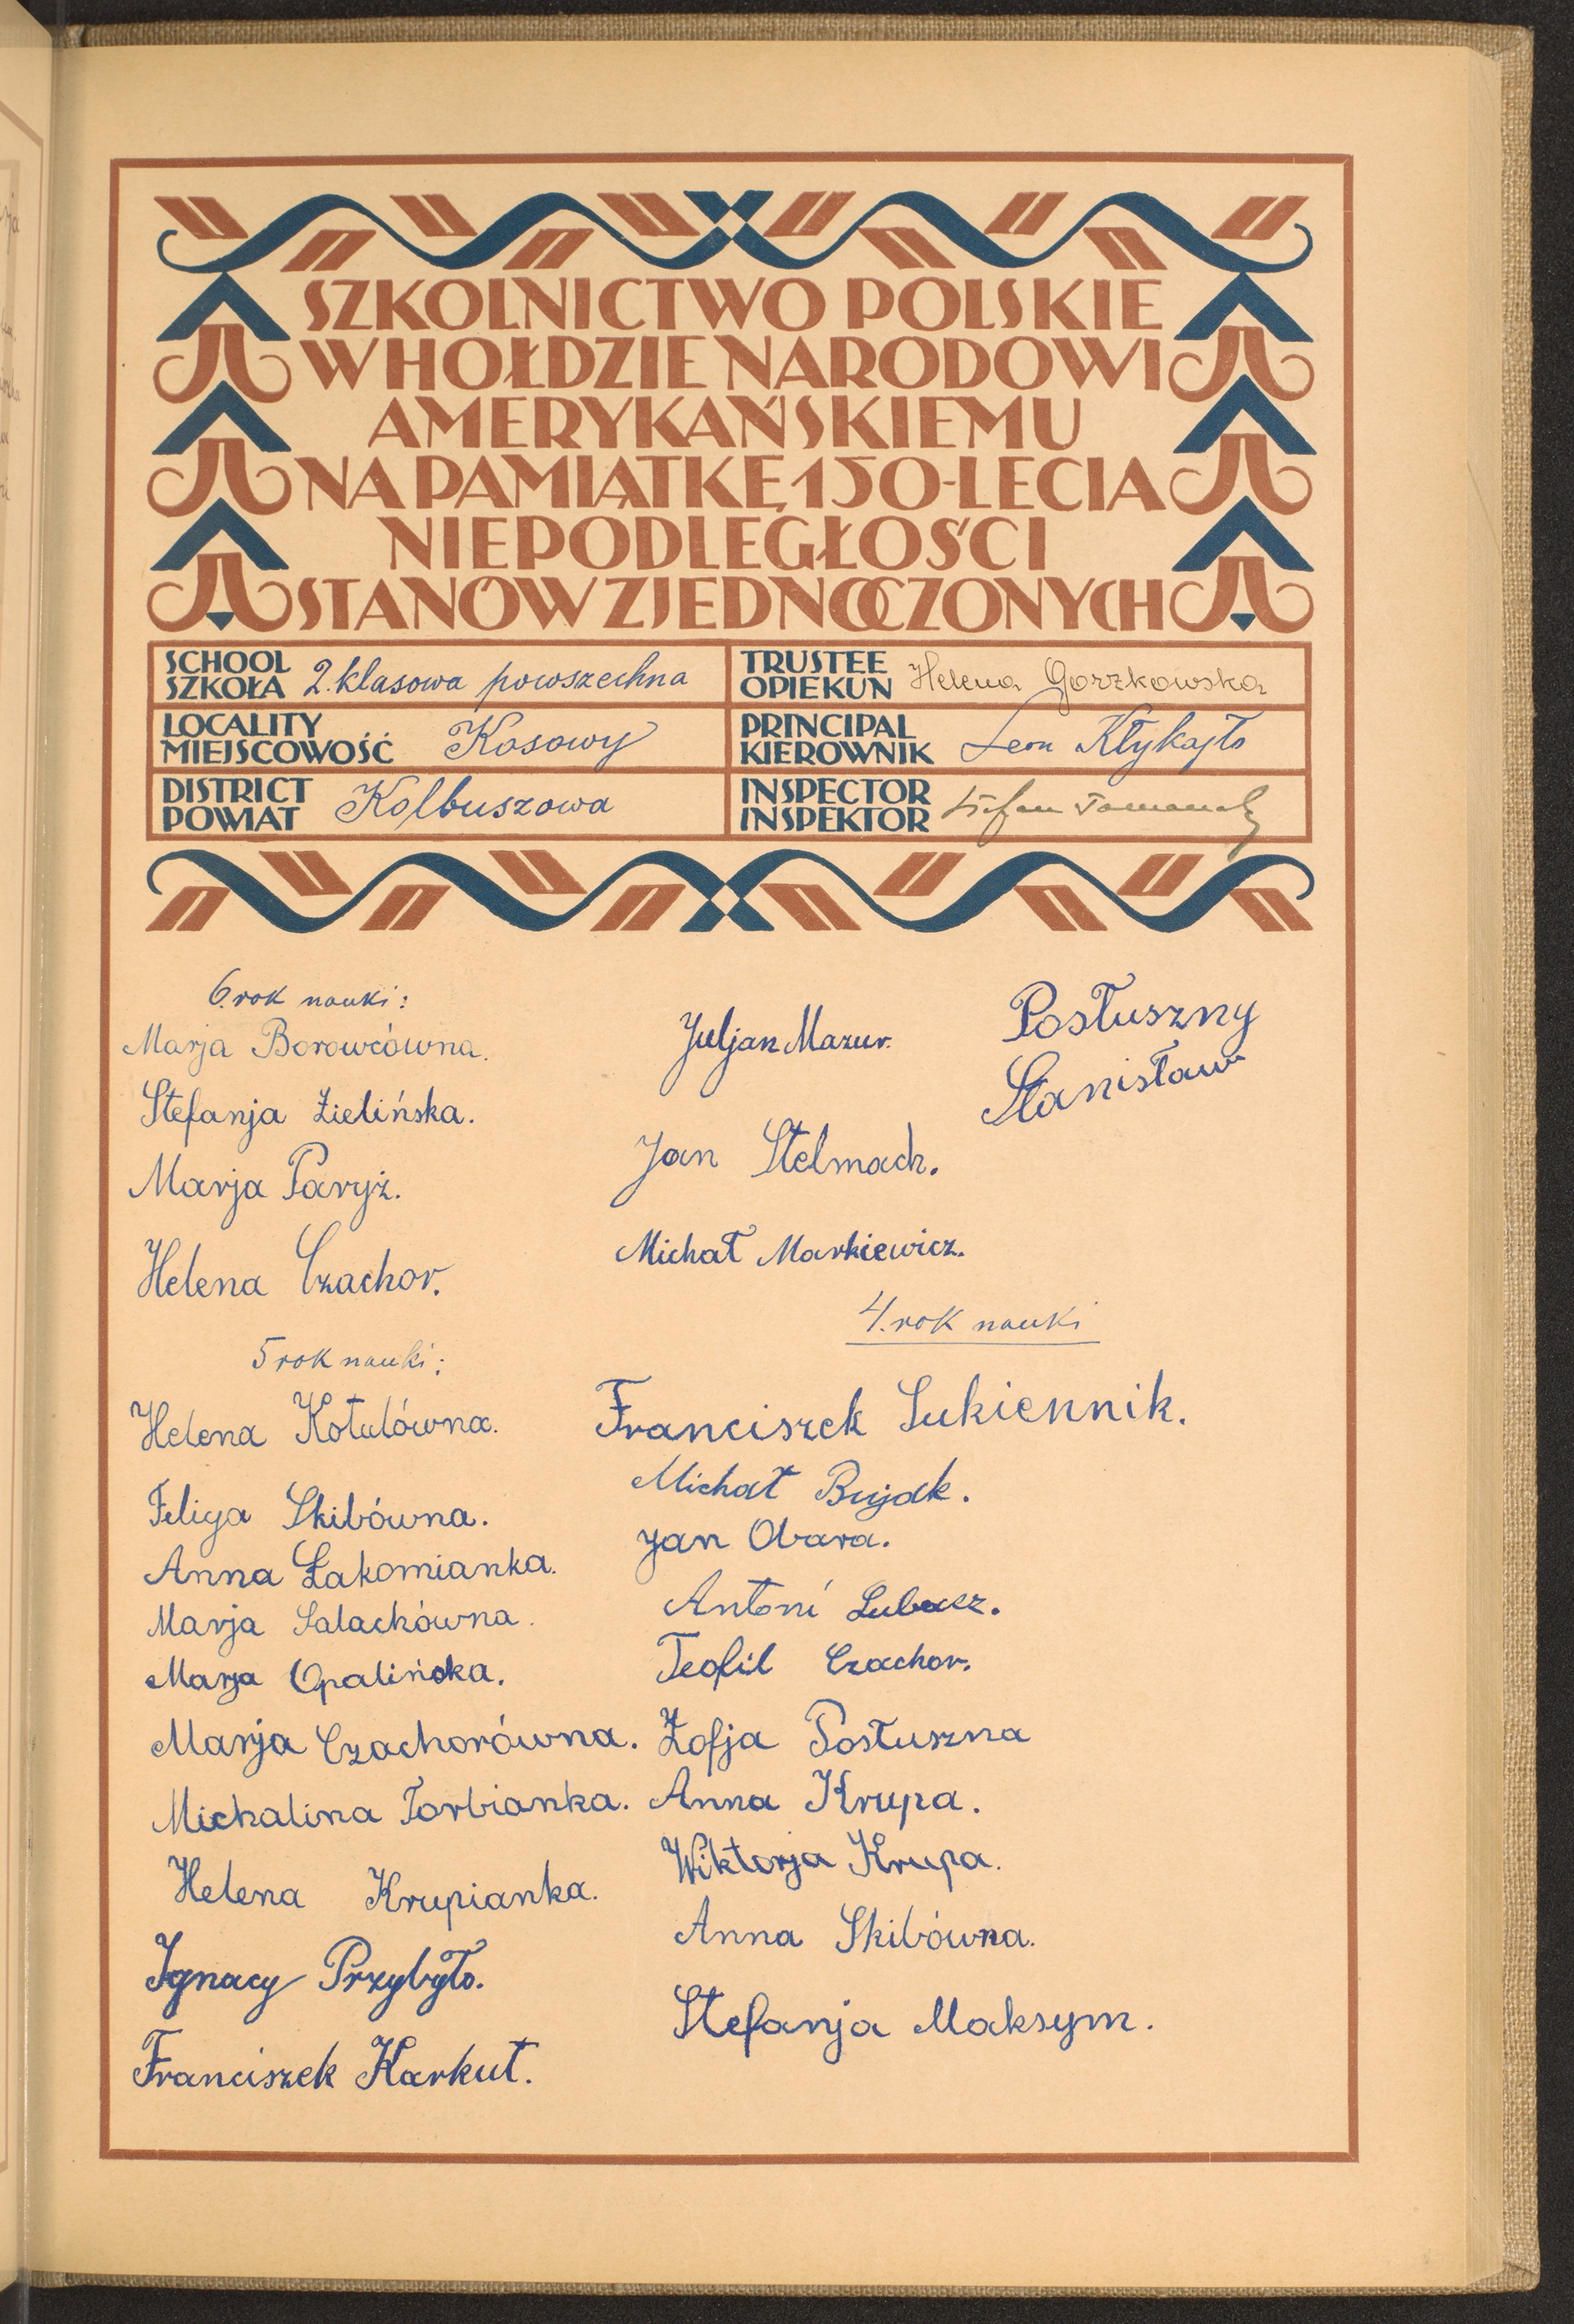 SZKOLNICTWO POLSKIE
W HOŁDZIE NARODOWI
AMERYKAŃSKIEMU
NA PAMIĄTKĘ 150-LECIA
NIEPODLEGŁOŚCI
STANÓW ZJEDNOCZONYCH
SCHOOL
SZKOŁA 2. klasowa powszechna
TRUSTEE
OPIEKUN Helena Gorzkowska
LOCALITY
MIEJSCOWOŚĆ Kosowy
PRINCIPAL
KIEROWNIK Leon Kłykajło
DISTRICT
POWIAT Kolbuszowa
INSPECTOR
INSPEKTOR Stefan
6. rok nauki:
Marja Borowcówna.
Stefanja Zielińska.
Marja Paryż.
Helena Czachor.
5 rok nauki:
Helena Kotulówna.
Felicja Skibówna.
Anna Łakomianka.
Marja Sałackówna.
Marja Opalińska.
Marja Czachorówna.
Michalina Torbianka.
Helena Krupianka.
Ignacy Przybyło.
Franciszek Karkut.
Juljan Mazur.
Jan Stelmach.
Michał Markiewicz.
Posłuszny
Stanisław
4. rok nauki
Franciszek Sukiennik.
Michał Bujak.
Jan Obara.
Antoni Lubacz.
Teofil Czachor.
Zofja Posłuszna
Anna Krupa.
Wiktorja Krupa.
Anna Skibówna.
Stefanja Maksym.